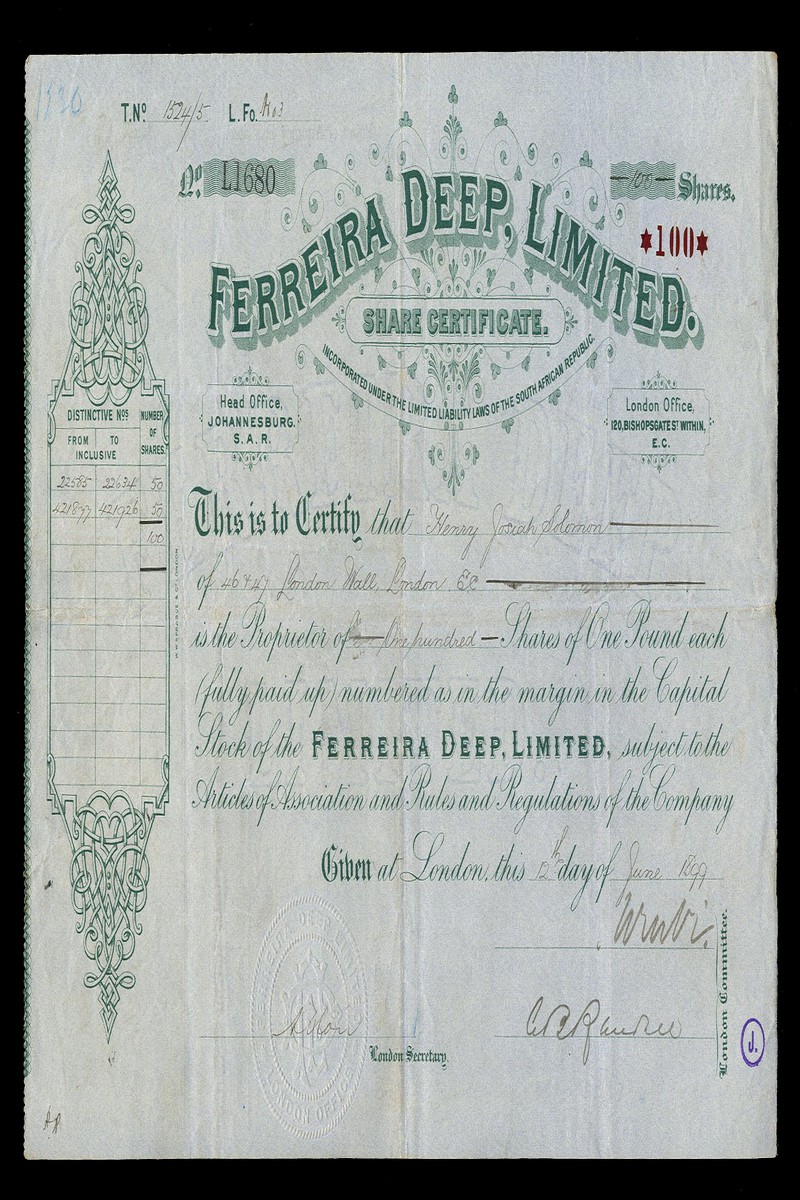 1526
T. No. 1524/5 L. Fo.
No. L1680
100 Shares.
*100*
FERREIRA DEEP, LIMITED.
SHARE CERTIFICATE.
INCORPORATED UNDER THE LIMITED LIABILITY LAWS OF THE SOUTH AFRICAN REPUBLIC.
Head Office,
JOHANNESBURG.
S.A.R.
London Office,
120, BISHOPSGATE ST WITHIN,
E.C.
DISTINCTIVE Nos NUMBER OF SHARES.
FROM TO
INCLUSIVE
22585 22634 50
421877 421926 50
100
This is to Certify that Henry Josiah Solomon
of 46 & 47 London Wall, London. EC
is the Proprietor of One hundred Shares of One Pound each
(fully paid up) numbered as in the margin in the Capital
Stock of the FERREIRA DEEP, LIMITED, subject to the
Articles of Association and Rules and Regulations of the Company
Given at London, this 12th day of June 1899
London Committee.
London Secretary.
J.